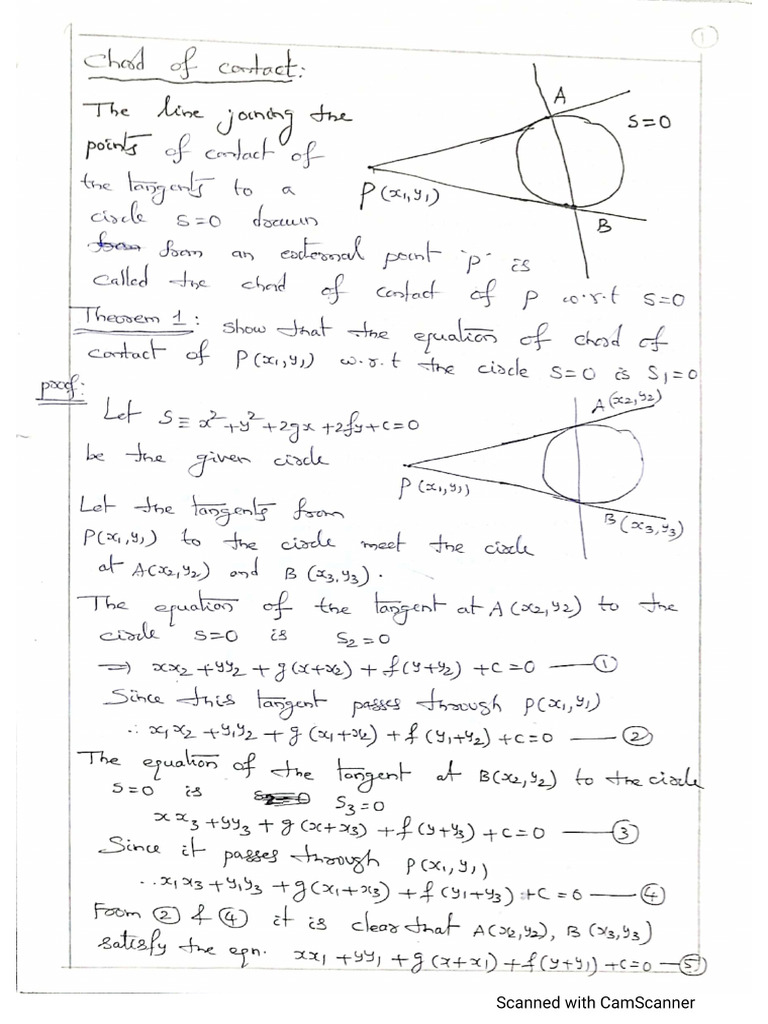 1
Chord of contact:
The line joining the
points of contact of
the tangents to a
circle S=0 drawn
from an external point 'p' is
called the chord of contact of P w.r.t S=0
A
S=0
P(x₁,y₁)
B
Theorem 1: Show that the equation of chord of
contact of P(x₁,y₁) w.r.t the circle S=0 is S₁=0
proof:
Let S ≡ x²+y²+2gx+2fy+c=0
be the given circle
A(x₂,y₂)
P(x₁,y₁)
B(x₃,y₃)
Let the tangents from
P(x₁,y₁) to the circle meet the circle
at A(x₂,y₂) and B(x₃,y₃).
The equation of the tangent at A(x₂,y₂) to the
circle S=0 is S₂=0
⇒ xx₂+yy₂+g(x+x₂)+f(y+y₂)+c=0 — ①
Since this tangent passes through P(x₁,y₁)
∴ x₁x₂+y₁y₂+g(x₁+x₂)+f(y₁+y₂)+c=0 — ②
The equation of the tangent at B(x₂,y₂) to the circle
S=0 is S₃=0
xx₃+yy₃+g(x+x₃)+f(y+y₃)+c=0 — ③
Since it passes through P(x₁,y₁)
∴ x₁x₃+y₁y₃+g(x₁+x₃)+f(y₁+y₃)+c=0 — ④
From ② & ④ it is clear that A(x₂,y₂), B(x₃,y₃)
satisfy the eqn. xx₁+yy₁+g(x+x₁)+f(y+y₁)+c=0 — ⑤
Scanned with CamScanner